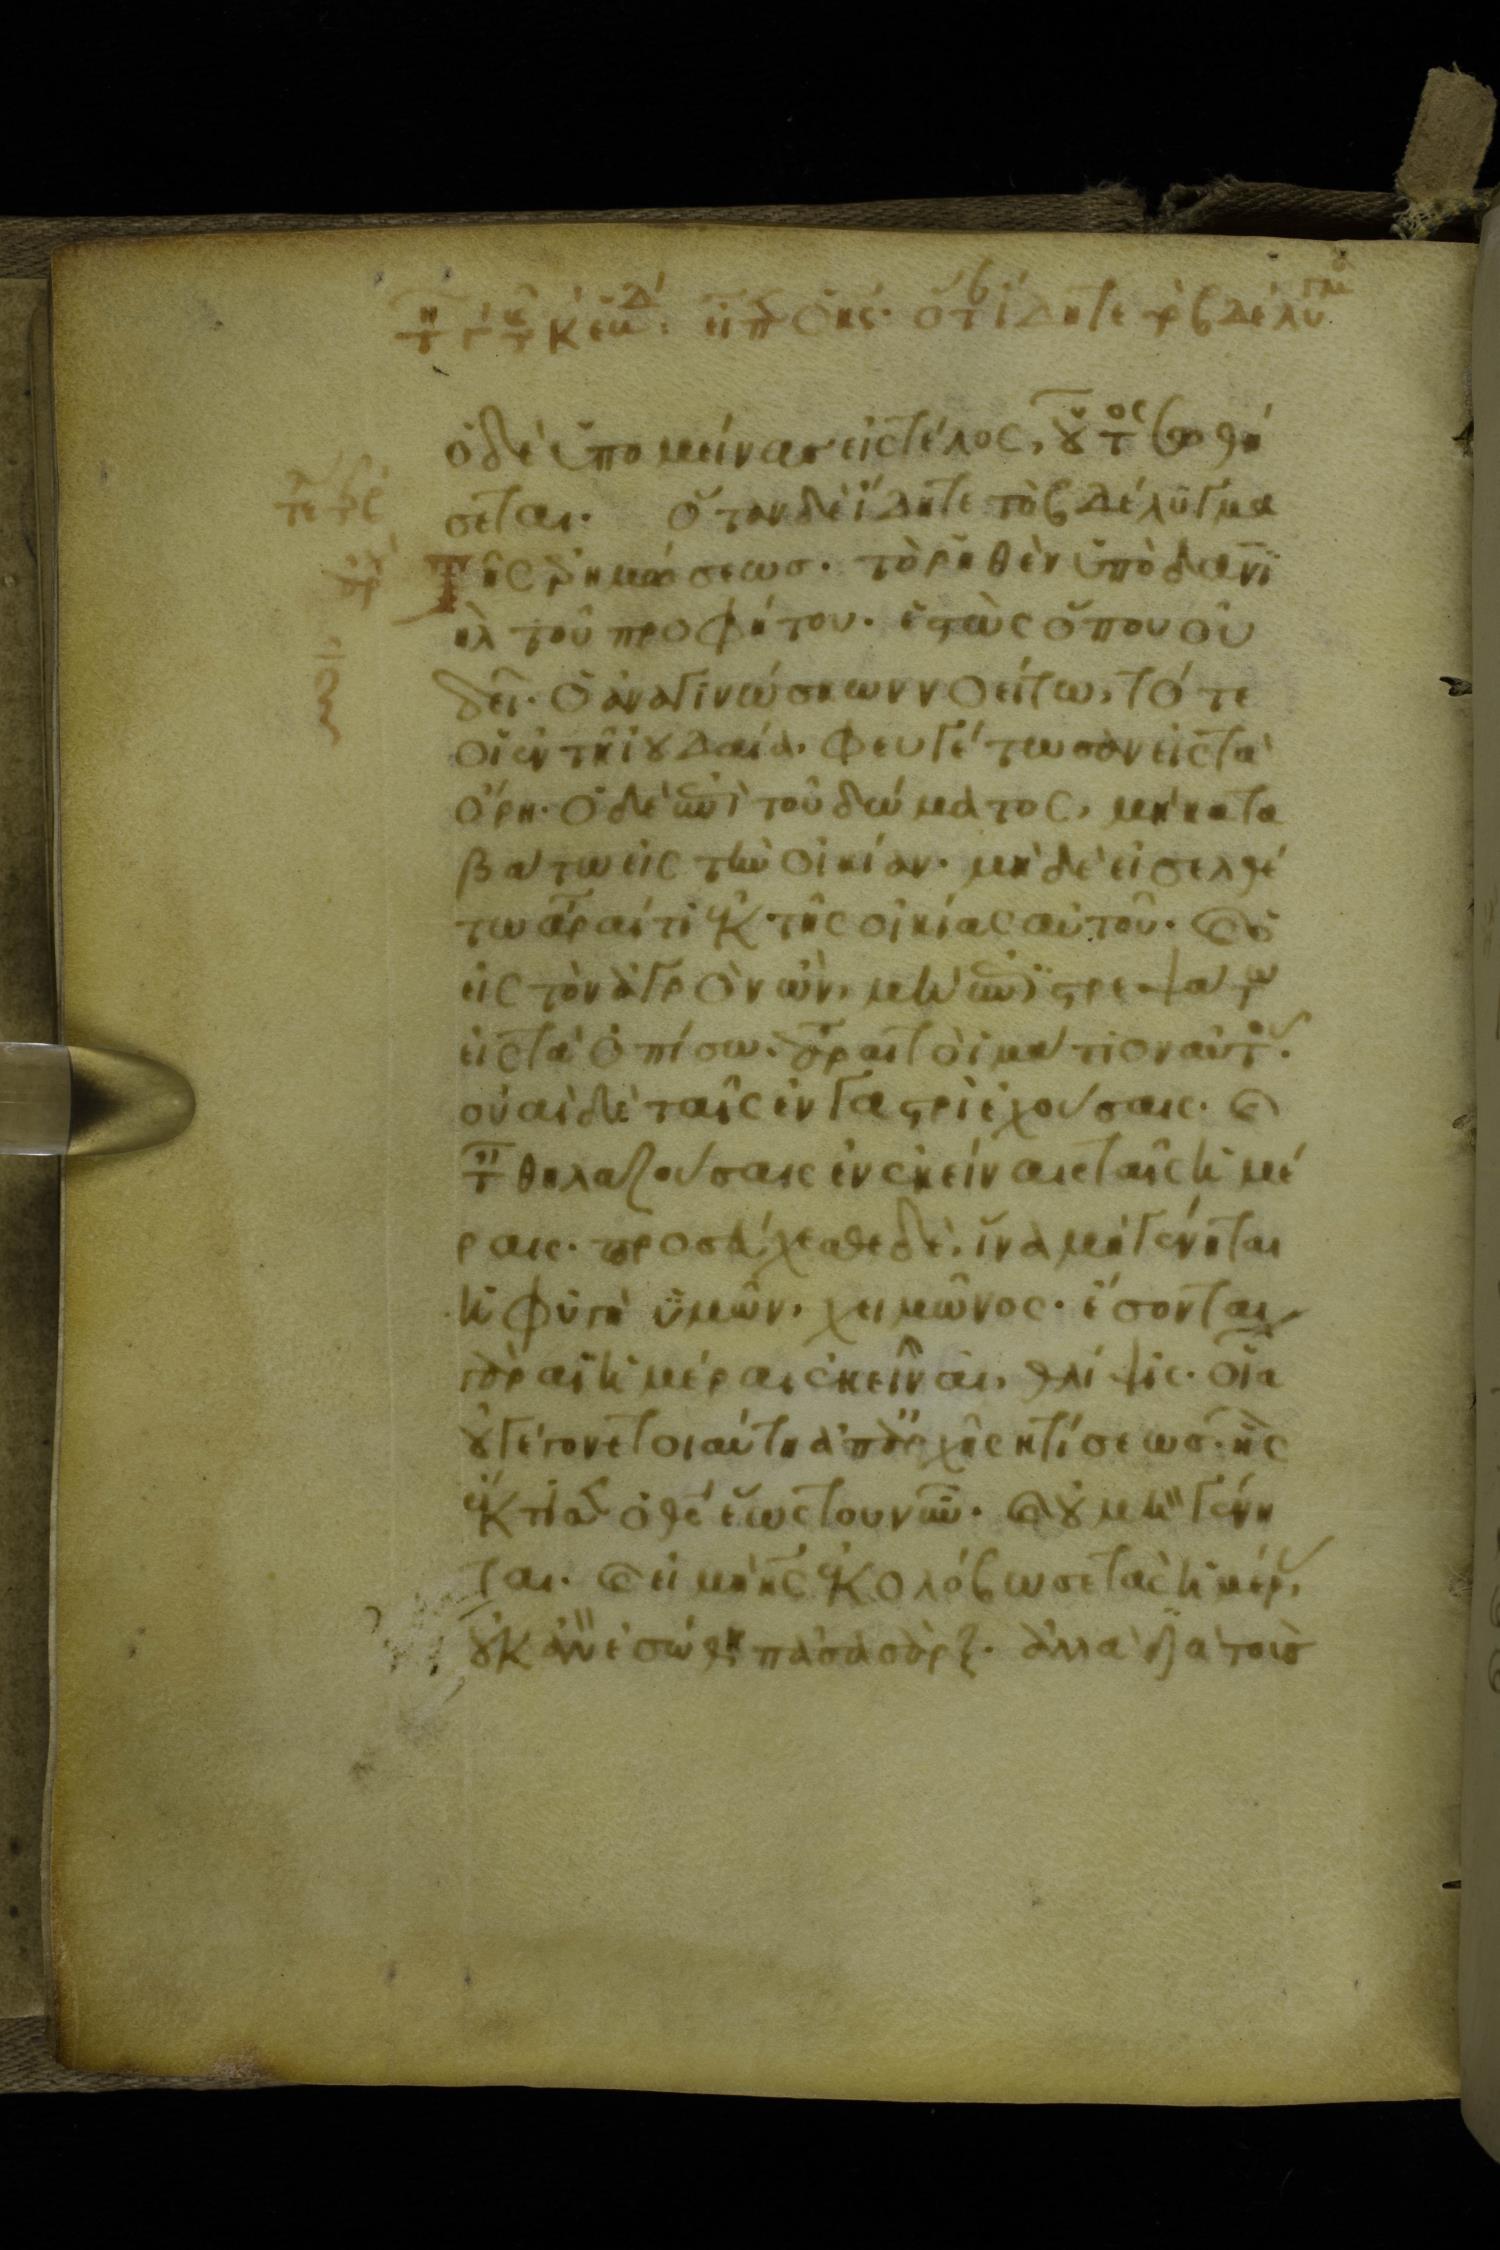 ὁ δὲ ὑπομείνας εἰς τέλος, οὗτος σωθή
σεται. ὅταν δὲ ἴδητε τὸ βδέλυγμα
τῆς ἐρημώσεως. τὸ ῥηθὲν ὑπὸ δανι
ὴλ τοῦ προφήτου. ἑστὼς ὅπου οὐ
δεῖ. ὁ ἀναγινώσκων νοείτω, τότε
οἱ ἐν τῆ ἰουδαία. φευγέτωσαν εἰς τὰ
ὄρη. ὁ δὲ ἐπὶ τοῦ δώματος, μὴ κατα
βάτω εἰς τὴν οἰκίαν. μὴ δὲ εἰσελθέ
τω ἆραί τι ἐκ τῆς οἰκίας αὐτοῦ. καὶ ὁ
εἰς τὸν ἀγρὸν ὢν, μὴ ἐπιστρεψάτω
εἰς τὰ ὀπίσω. ἆραι τὸ ἱμάτιον αὐτοῦ.
οὐαὶ δὲ ταῖς ἐν γαστρὶ ἐχούσαις. καὶ
τ θηλαζούσαις ἐν ἐκείναις ταῖς ἡμέ
ραις. προσεύχεσθε δὲ, ἵνα μὴ γένηται
ἡ φυγὴ ὑμῶν, χειμῶνος. ἔσονται
γὰρ αἱ ἡμέραι ἐκεῖναι, θλίψις. οἵα
οὐ γέγονε τοιαύτη ἀπ' ἀρχῆς κτίσεως. ἧς
ἔκτισεν ὁ θς ἕως τοῦ νῦν. καὶ οὐ μὴ γένη
ται. καὶ εἰ μὴ κς ἐκολόβωσε τὰς ἡμέρ,
οὐκ ἂν ἐσώθη πᾶσα σάρξ. ἀλλὰ διὰ τοὺς